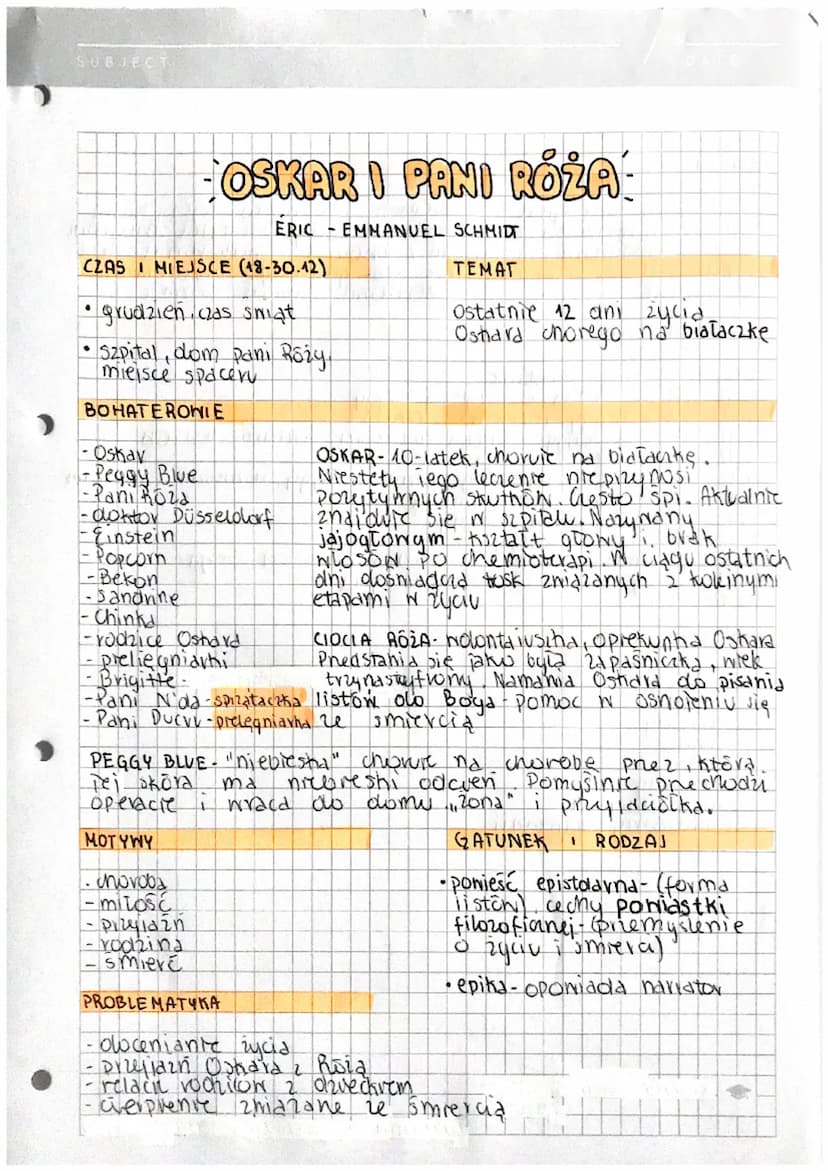 SUBJECT
DATE
OSKAR I PANI RÓŻA
ÉRIC - EMMANUEL SCHMIDT
CZAS I MIEJSCE (18-30.12)
• grudzień, czas świąt
• szpital, dom pani Róży,
miejsce spaceru
TEMAT
Ostatnie 12 dni życia
Oskara chorego na białaczkę
BOHATEROWIE
- Oskar
- Peggy Blue
- Pani Róża
- doktor Düsseldorf
- Einstein
- Popcorn
- Bekon
- Sandrine
- Chinka
- rodzice Oskara
- pielęgniarki
- Brigitte -
- Pani N'da - sprzątaczka
- Pani Ducru - pielęgniarka
OSKAR - 10-latek, choruje na białaczkę.
Niestety jego leczenie nie przynosi
pozytywnych skutków. Często śpi. Aktualnie
znajduje się w szpitalu. Nazywany
jajogłowym - kształt głowy i brak
włosów po chemioterapi. W ciągu ostatnich
dni doświadcza trosk związanych z kolejnymi
etapami w życiu
CIOCIA RÓŻA - wolontariuszka, opiekunka Oskara
Przedstawia się jako była zapaśniczka, wiek
trzynastyfrowy. Namawia Oskara do pisania
listów do Boga - pomoc w oswojeniu się
ze śmiercią
PEGGY BLUE - "niebieska" choruje na chorobę przez którą
jej skóra ma niebieski odcień. Pomyślnie przechodzi
operacje i wraca do domu. „żona" i przyjaciółka.
MOTYWY
- choroba
- miłość
- przyjaźń
- rodzina
- śmierć
GATUNEK I RODZAJ
• powieść epistolarna - (forma
listów), cechy powiastki
filozoficznej - (przemyślenie
o życiu i śmierci)
• epika - opowiada narrator
PROBLEMATYKA
- docenianie życia
- przyjaźń Oskara z Różą
- relacje rodziców z dzieckiem
- cierpienie związane ze śmiercią